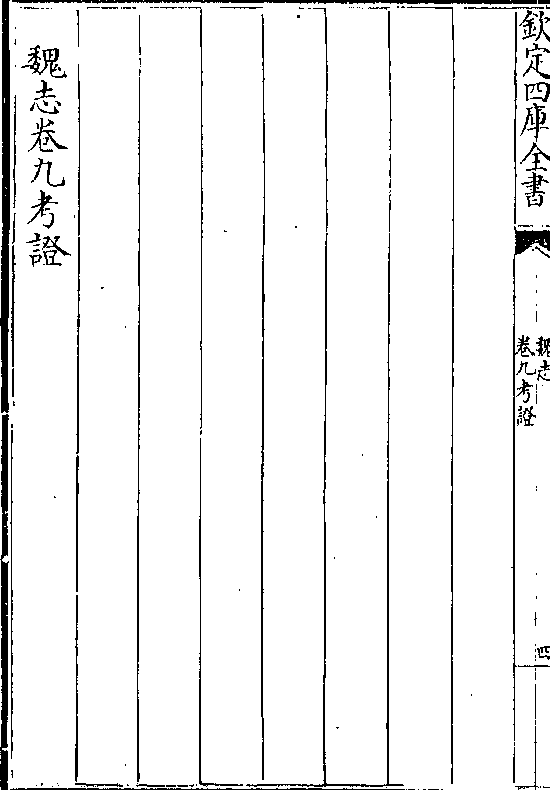 欽定四庫全書
魏志
卷九考證
四
魏志卷九考證